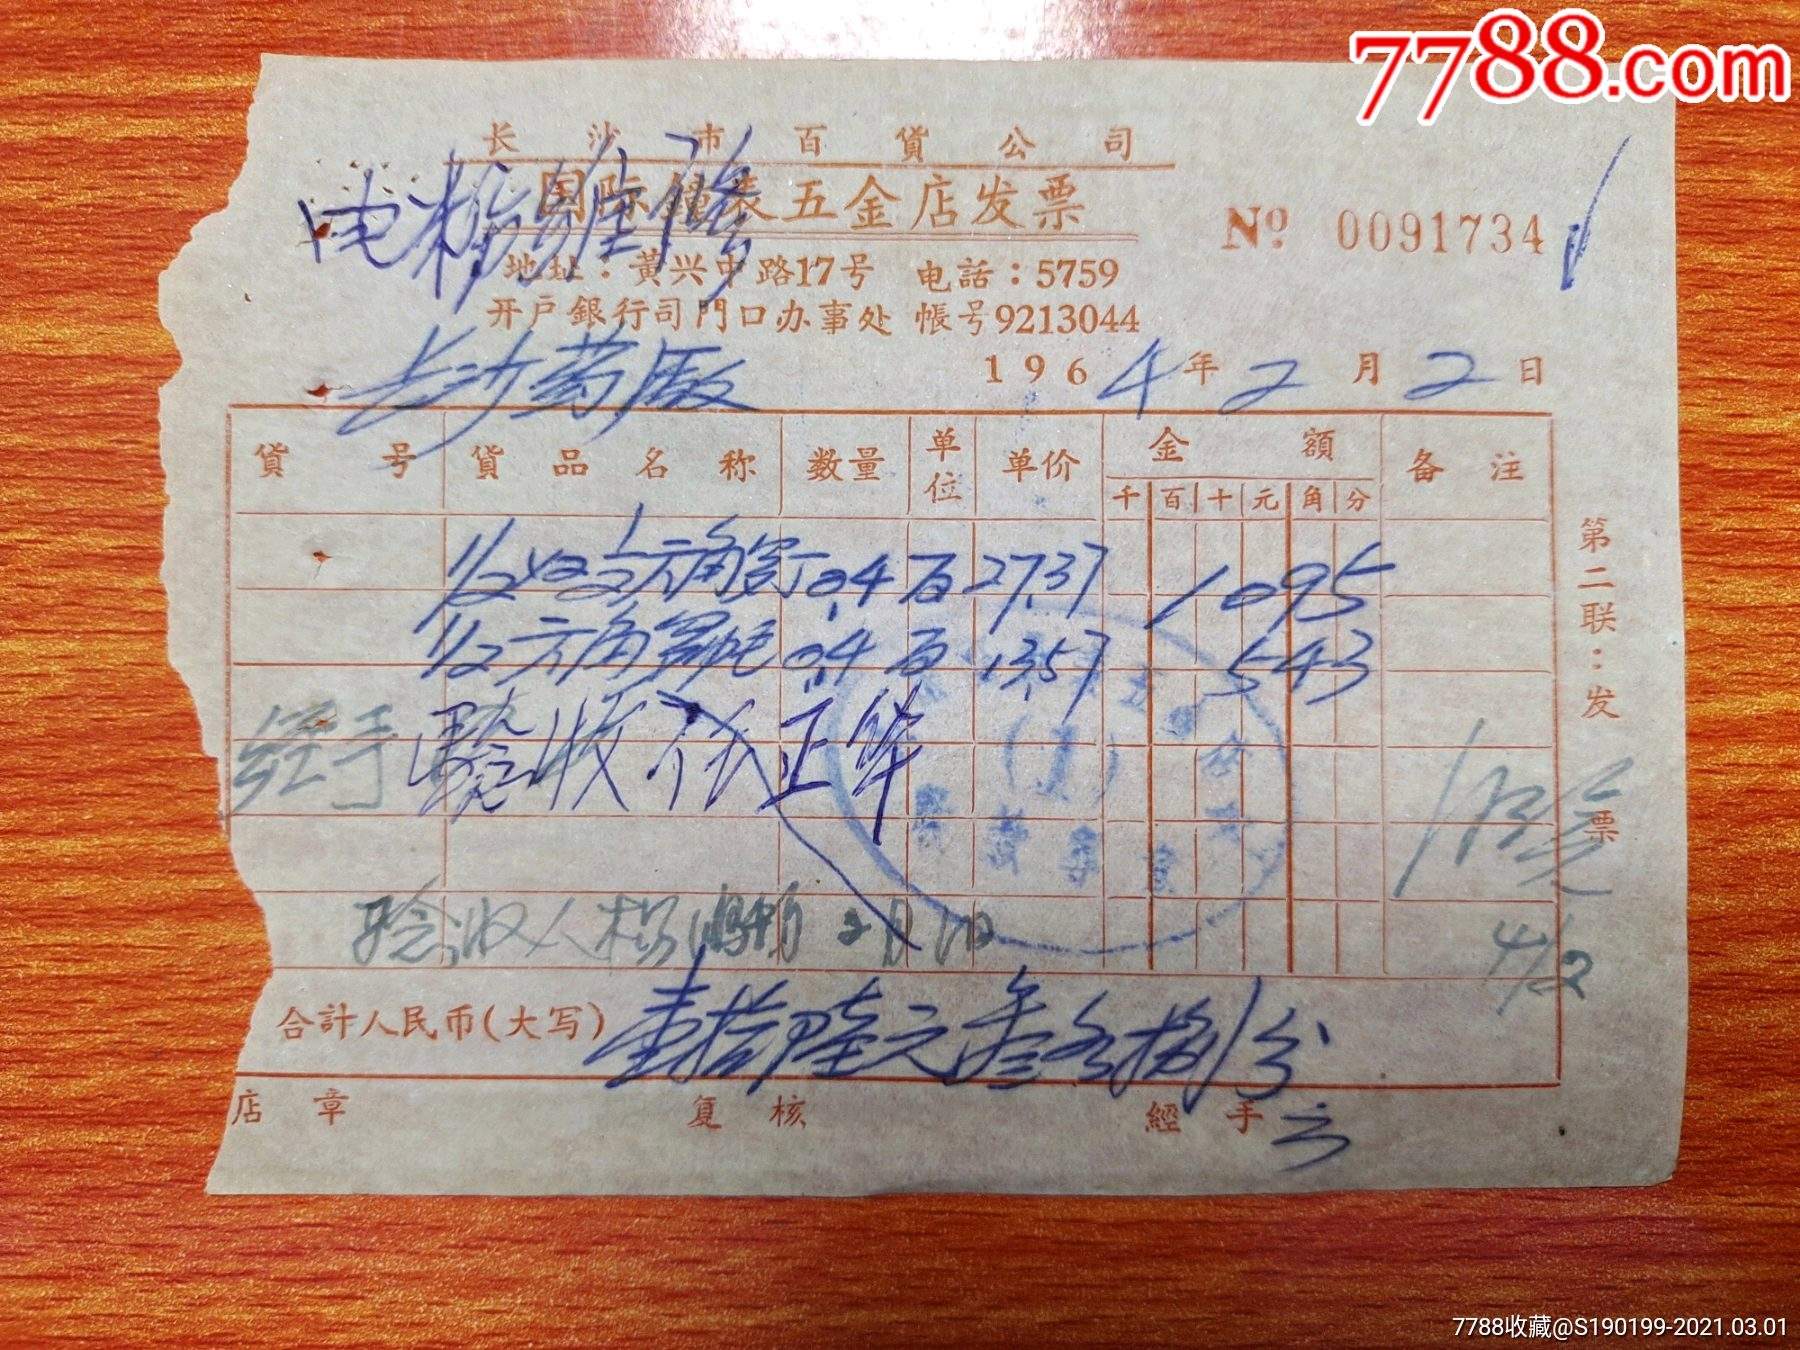 7788.com
长沙市百貨公司
国际鐘表五金店发票
№ 0091734
电粉维修
地址：黄兴中路17号 电話：5759
开戶銀行司門口办事处 帳号9213044
长沙药厰
1964年2月2日
貨号 貨品名称 数量 单位 单价 金額 备注
千 百 十 元 角 分
1/2x2 1/2六角罗丁 0.4 百 27.37 1095
1/2六角罗帽 0.4 百 13.57 543
经手 验收 伍正华
验收人 2月
4/2
合計人民币(大写) 壹拾陸元叁角捌分
店章 复核 經手
第二联：发票
7788收藏@S190199-2021.03.01